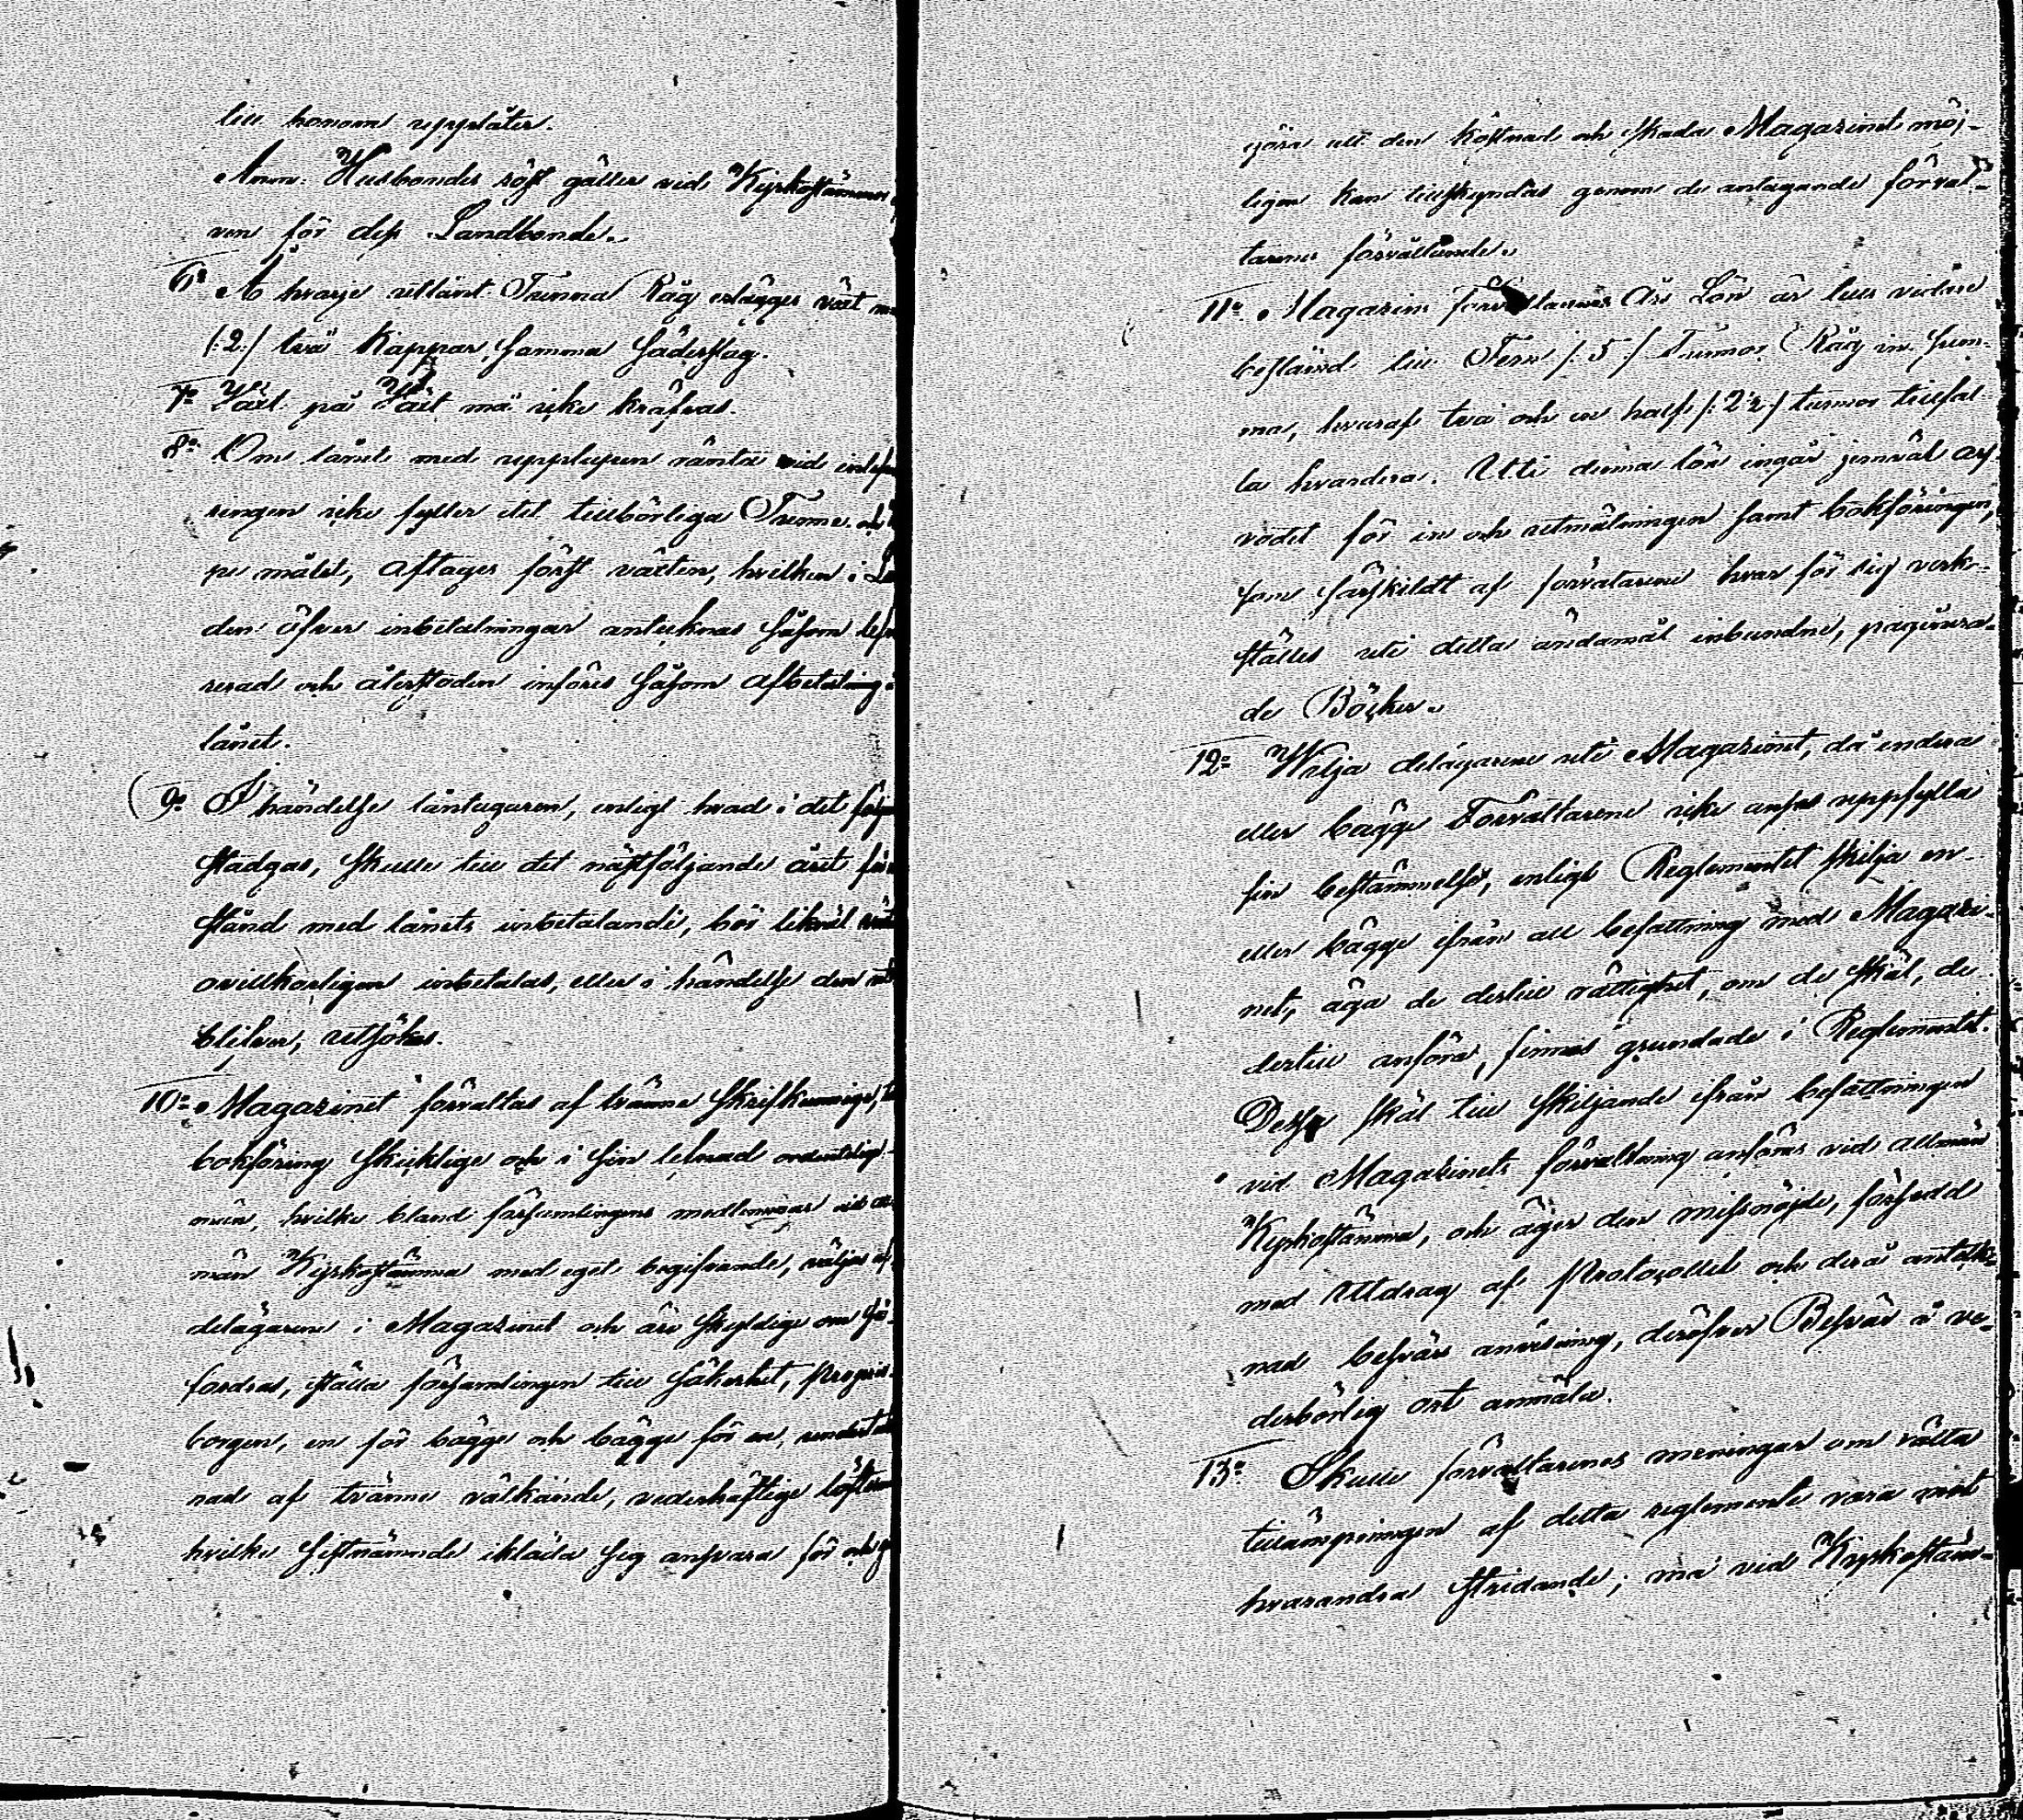 till honom upplåter.
Anm: Husbondes röst gäller vid Kyrkostämmor
ven för dess Landbonde.
6o Å hvarje utlånt Tunna Råg erlägges växt m
/:2:/ två Kappar samma Sädesslag.
7o Växt på Växt må icke kräfvas.
8o Om lånet med upplupen ränta vid inlef
ringen icke fyller det tillbörliga Tunne och
pe målet, aftages först växten, hvilken i
den öfver inbetalningar antecknas såsom lef
rerad och återstoden införes såsom afbetalning å
lånet.
9o I händelse låntagaren, enligt hvad i det
stadgas, skulle till det nästföljande året få
stånd med lånets inbetalande, bör likväl växt
ovillkorligen inbetalas, eller i händelse den
blifver, utsökas.
10o Magazinet förvaltas af tvänne Skrifkunnige,
bokföring skicklige och i sin lefnad ordentlige
män, hvilke bland församlingens medlemmar vid all
män Kyrkostämma med eget begifvande, väljas af
delägarene i Magazinet och äro skyldige om så
fordras, ställa församlingen till säkerhet, Proprie
borgen, en för bägge och bägge för en, undertek
nad af tvänne välkände, vederhäftige löftesm
hvilke sistnämnde ikläda sig ansvara för och g
göra all den kostnad och skada Magazinet möj-
ligen kan tillskyndas genom de antagande förval-
tarenes förvållande.
11o Magazins förvaltarnes Års Lön är till vidare
bestämd till Fem /:5:/ Tunnor Råg in Sum-
ma, hvaraf två och en half /:2½:/ tunnor tillfal-
la hvardera. Uti denna lön ingår jemväl arf-
vodet för in och utmätningen samt bokföringen,
som särskildt af förvatarene hvar för sig verk-
ställes uti detta ändamål inbundne, paginera-
de Böcker.
12o Wilja delägarene uti Magazinet, då endera
eller bägge Förvaltarene icke anses uppfylla
sin bestämmelse, enligt Reglementet skilja en
eller bägge ifrån all befattning med Magazi-
net, äga de dertill rättighet, om de skäl, de
dertill anföra, finnas grundade i Reglementet.
Dessa skäl till skiljande ifrån befattningen
vid Magazinets förvaltning anföras vid allmän
Kyrkostämma, och äger den missnöjde, försedd
med Utdrag af Protocollet och derå anteck-
nad besvärs anvisning, deröfver Besvär å ve-
derbörlig ort anmäla.
13o Skulle förvaltarenes meningar om rätta
tillämpningen af detta reglemente vara mot
hvarandra stridande; må vid Kyrkostäm-